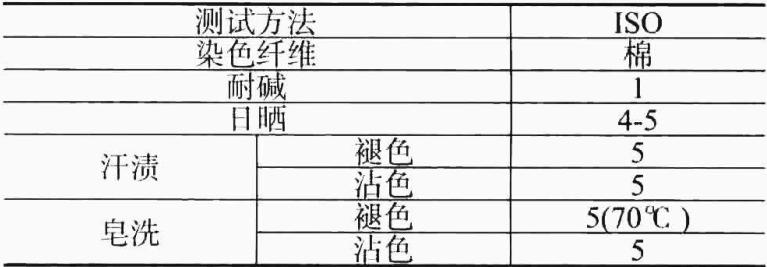 测试方法 ISO
染色纤维 棉
耐碱 1
日晒 4-5
汗渍 褪色 5
沾色 5
皂洗 褪色 5(70℃)
沾色 5